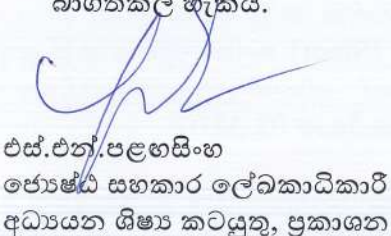 බාගතකල හැකිය.
එස්.එන්.පළඟසිංහ
ජ්‍යෙෂ්ඨ සහකාර ලේඛකාධිකාරී
අධ්‍යයන ශිෂ්‍ය කටයුතු, ප්‍රකාශන